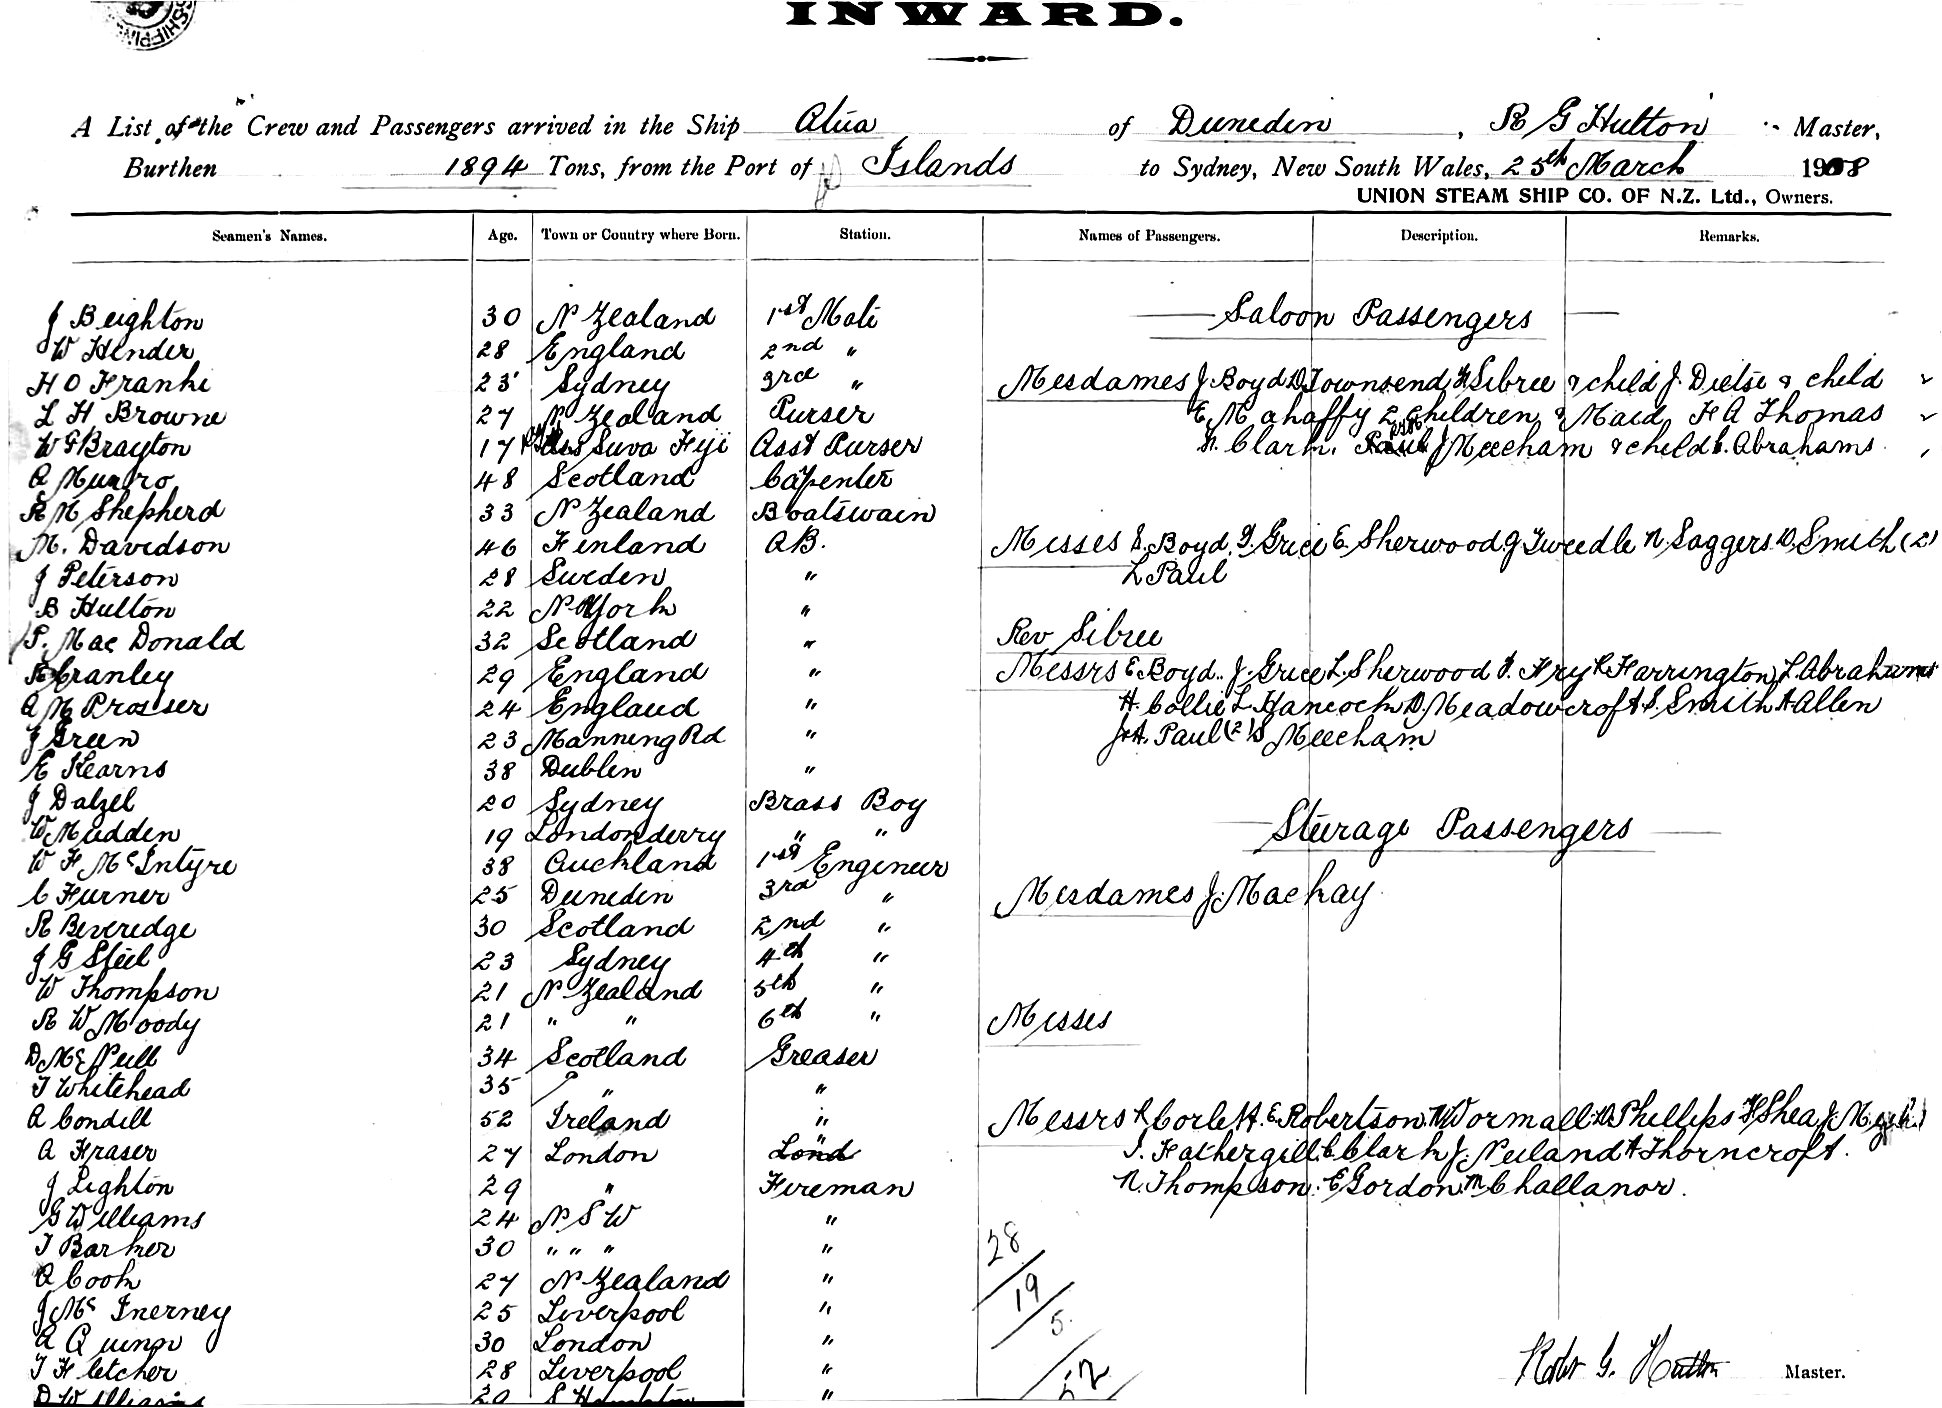 SHIPPING
INWARD.
A List of the Crew and Passengers arrived in the Ship Atua of Dunedin, R G Hutton Master,
Burthen 1894 Tons, from the Port of Islands to Sydney, New South Wales, 25th March 1908
UNION STEAM SHIP CO. OF N.Z. Ltd., Owners.
Seamen's Names. Age. Town or Country where Born. Station. Names of Passengers. Description. Remarks.
J Beighton 30 N Zealand 1st Mate
Saloon Passengers
W Hender 28 England 2nd "
H O Franki 23 Sydney 3rd " Mesdames J Boyd D Townsend Sibree & child J. Dietse & child
L H Browne 27 N Zealand Purser E Mahaffy 2 children & Maid H A Thomas
W G Brayton 17 Suva Fiji Asst Purser Clark. J Meecham & child Abrahams
A Munro 48 Scotland Capenter
R M Shepherd 33 N Zealand Boatswain
M. Davidson 46 Finland AB. Misses E. Boyd, Grice E Sherwood J Tweedle N Saggers D. Smith (2)
J Peterson 28 Sweden " L Paul
B Hutton 22 N York "
P. Mac Donald 32 Scotland " Rev Sibree
Cranley 29 England " Messrs E Boyd.. J. Grice L. Sherwood Fry R Harrington, L. Abrahams
A M Prosser 24 England " H. Collie L. Hancock D. Meadowcroft S. Smith A Allen
J Green 23 Manning Rd " J & A. Paul (2) S Meecham
E Kearns 38 Dublin "
J Dalzel 20 Sydney Brass Boy
W Madden 19 Londonderry " " Steerage Passengers
W F McIntyre 38 Auckland 1st Engineer
C Furner 25 Dunedin 3rd " Mesdames J. Mackay
R Beveredge 30 Scotland 2nd "
J G Steel 23 Sydney 4th "
W Thompson 21 N Zealand 5th "
R W Moody 21 " " 6th " Misses
D McNeill 34 Scotland Greaser
T Whitehead 35 " "
A Condell 52 Ireland " Messrs R Corlett. E. Robertson. Wormall D. Phillips H Shea J.
A Fraser 27 London " Fathergill C Clark J. Neiland A Thorncroft.
J Lighton 29 " Fireman N. Thompson. E Gordon M Challanor.
G Williams 24 N S W "
T Barker 30 " " " " 28
A Cook 27 N Zealand "
J Mc Inerney 25 Liverpool " 19
A Quinn 30 London " 5.
T Fletcher 28 Liverpool " 52
Robt G. Hutton Master.
D Williams "